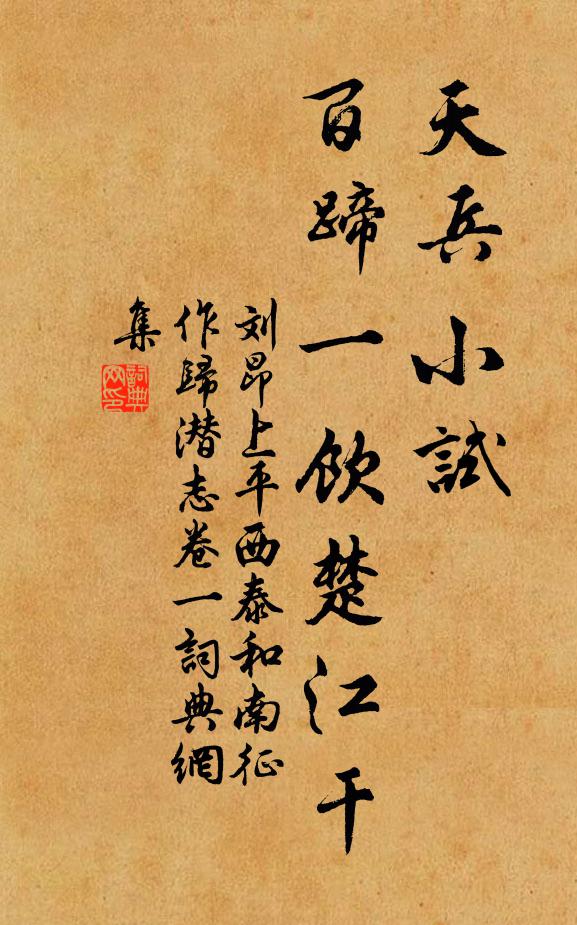 天兵小試
百蹄一飲楚江干
刘昂上平西泰和南征
作歸潜志卷一詞典網
集
詞典
网印